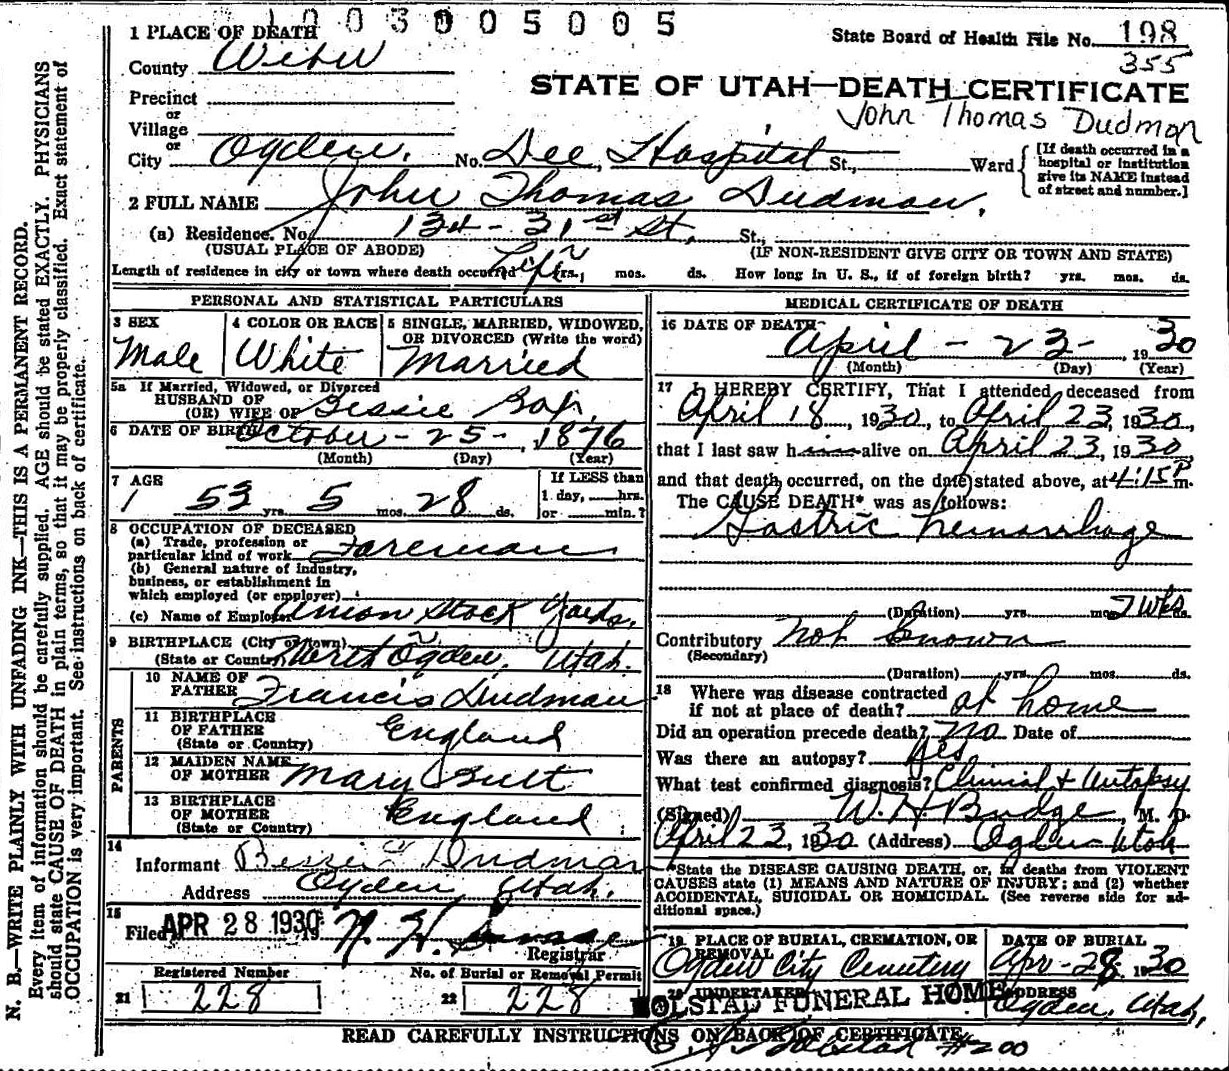 1003005005
1 PLACE OF DEATH
State Board of Health File No. 198
355
County Weber
STATE OF UTAH—DEATH CERTIFICATE
Precinct
John Thomas Dudman
or
Village
or
City Ogden. No. Dee Hospital St., Ward
[If death occurred in a hospital or institution give its NAME instead of street and number.]
2 FULL NAME John Thomas Dudman.
(a) Residence. No. 134 - 31st St. St.,
(USUAL PLACE OF ABODE) (IF NON-RESIDENT GIVE CITY OR TOWN AND STATE)
Length of residence in city or town where death occurred Life yrs., mos. ds. How long in U. S., if of foreign birth? yrs. mos. ds.
PERSONAL AND STATISTICAL PARTICULARS
3 SEX
Male
4 COLOR OR RACE
White
5 SINGLE, MARRIED, WIDOWED, OR DIVORCED (Write the word)
Married
5a If Married, Widowed, or Divorced
HUSBAND OF
(OR) WIFE OF Bessie
6 DATE OF BIRTH October - 25 - , 1876
(Month) (Day) (Year)
7 AGE
53 yrs. 5 mos. 28 ds.
If LESS than
1 day, hrs.
or min.?
8 OCCUPATION OF DECEASED
(a) Trade, profession or
particular kind of work Foreman
(b) General nature of industry,
business, or establishment in
which employed (or employer)
(c) Name of Employer Union Stock Yards.
9 BIRTHPLACE (City or town)
(State or Country) North Ogden, Utah.
PARENTS
10 NAME OF
FATHER Francis Dudman
11 BIRTHPLACE
OF FATHER
(State or Country) England
12 MAIDEN NAME
OF MOTHER Mary Butt
13 BIRTHPLACE
OF MOTHER
(State or Country) England
14
Informant Bessie Dudman
Address Ogden, Utah.
15
Filed APR 28 1930 19
Registrar
Registered Number No. of Burial or Removal Permit
21 228 22 228
MEDICAL CERTIFICATE OF DEATH
16 DATE OF DEATH
April - 23 - , 1930
(Month) (Day) (Year)
17 I HEREBY CERTIFY, That I attended deceased from
April 18, 1930, to April 23, 1930,
that I last saw him alive on April 23, 1930,
and that death occurred, on the date stated above, at 4:15 P m.
The CAUSE DEATH* was as follows:
Gastric hemorrhage
(Duration) yrs. mos. wks ds.
Contributory not known
(Secondary)
(Duration) yrs. mos. ds.
18 Where was disease contracted
if not at place of death? at home
Did an operation precede death? No Date of
Was there an autopsy? Yes
What test confirmed diagnosis? Clinical & Autopsy
(Signed) W. H. Budge, M. D.
April 23, 1930 (Address) Ogden Utah
*State the DISEASE CAUSING DEATH, or, in deaths from VIOLENT
CAUSES state (1) MEANS AND NATURE OF INJURY; and (2) whether
ACCIDENTAL, SUICIDAL OR HOMICIDAL. (See reverse side for ad-
ditional space.)
19 PLACE OF BURIAL, CREMATION, OR
REMOVAL
Ogden City Cemetery
DATE OF BURIAL
Apr-28, 1930
20 UNDERTAKER
FUNERAL HOME
ADDRESS
Ogden, Utah,
READ CAREFULLY INSTRUCTIONS ON BACK OF CERTIFICATE
#200
N. B.—WRITE PLAINLY WITH UNFADING INK—THIS IS A PERMANENT RECORD.
Every item of information should be carefully supplied. AGE should be stated EXACTLY. PHYSICIANS
should state CAUSE OF DEATH in plain terms, so that it may be properly classified. Exact statement of
OCCUPATION is very important. See instructions on back of certificate.